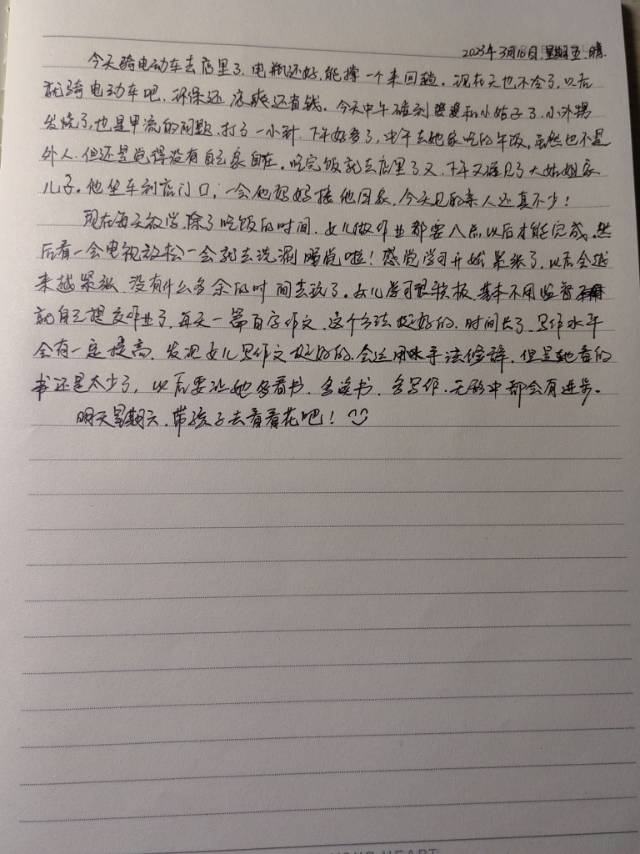 2023年3月18日.星期五.晴.
今天骑电动车去店里了,电瓶还好,能撑一个来回趟。现在天也不冷了,以后
就骑电动车吧,环保还凉爽还省钱。今天中午碰到婆婆和小姑子了,小外甥
发烧了,也是甲流的问题,打了一小针,下午好多了,中午去她家吃的午饭,虽然也不是
外人,但还是觉得没有自己家自在。吃完饭就去店里了又,下午又碰见了大姑姐家
儿子。他坐车到店门口,一会他妈妈接他回家,今天见的亲人还真不少!
现在每天放学,除了吃饭的时间,女儿做作业都要八点以后才能完成,然
后看一会电视放松一会就去洗漱睡觉啦!感觉学习开始累来了,以后会越
来越紧张,没有什么多余的时间去玩了。女儿学习积极,基本不用监督
就自己提交作业了,每天一篇百字作文,这个方法挺好的,时间长了,写作水平
会有一定提高,发现女儿写作文挺好的,会运用手法修辞,但是她看的
书还是太少了,以后要让她多看书,多读书,多写作,无形中都会有进步。
明天星期六,带孩子去看看花吧!